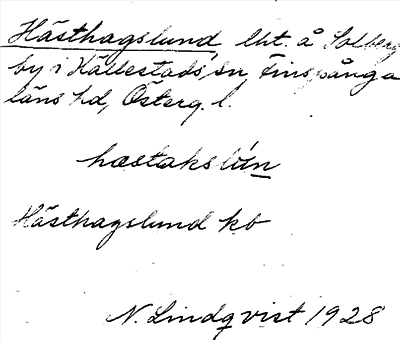 Hästhagslund lht. å Solberg
by i Hällestads sn, Finspånga
läns hd, Österg. l.
hæstakslún
Hästhagslund kb
N. Lindqvist 1928